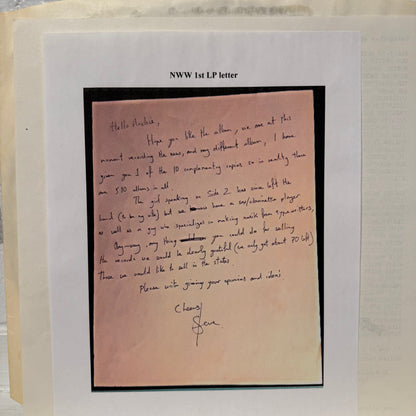 NWW 1st LP letter
Hello
Hope you like the album, we are at this
moment recording the new, and very different album, I have
given you 1 of the 10 complementry copies so in reality there
are 510 albums in all.
The girl speaking on Side 2 has since left the
band (to be my wife) but we now have a sax/clarinettist player
as well as a guy who specializes in making music from typewriters,
Anyway, any thing you could do for selling
the records we would be dearly grateful (we only got about 70 left)
these we would like to sell in the states.
Please write giving your opinions and ideas
Cheers
Steve